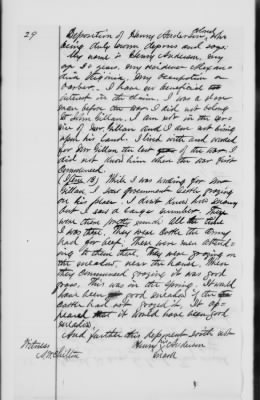 29
Deposition of Henry Anderson, Colored, who
being duly sworn deposes and says:
My name is Henry Anderson, my
age 30 years, my residence Alexan-
dria Virginia, my occupation a
barber. I have no beneficial
interest in the claim. I was a slave
man before the war. I did not belong
to Gillan. I am not in the ser-
vice of Mr. Gillan and I am not living
upon his land. I lived with and worked
for Mr. Gillan the last year of the war. I
did not know him when the war first
commenced.
While I was working for Mr.
Gillan I saw government cattle grazing
on his place. I don't know how many
but I saw a large number. There
were them pretty much all the time
I was there. They were cattle the army
had for beef. There were men attend-
ing to them there. They were grazing on
the meadow near the house. When
they commenced grazing it was good
grass. This was in the Spring. It would
have been good meadow if the
cattle had not grazed it. It ap-
peared that it would have been good
meadow.
And further this deponent saith not
Witness
Henry Anderson
mark